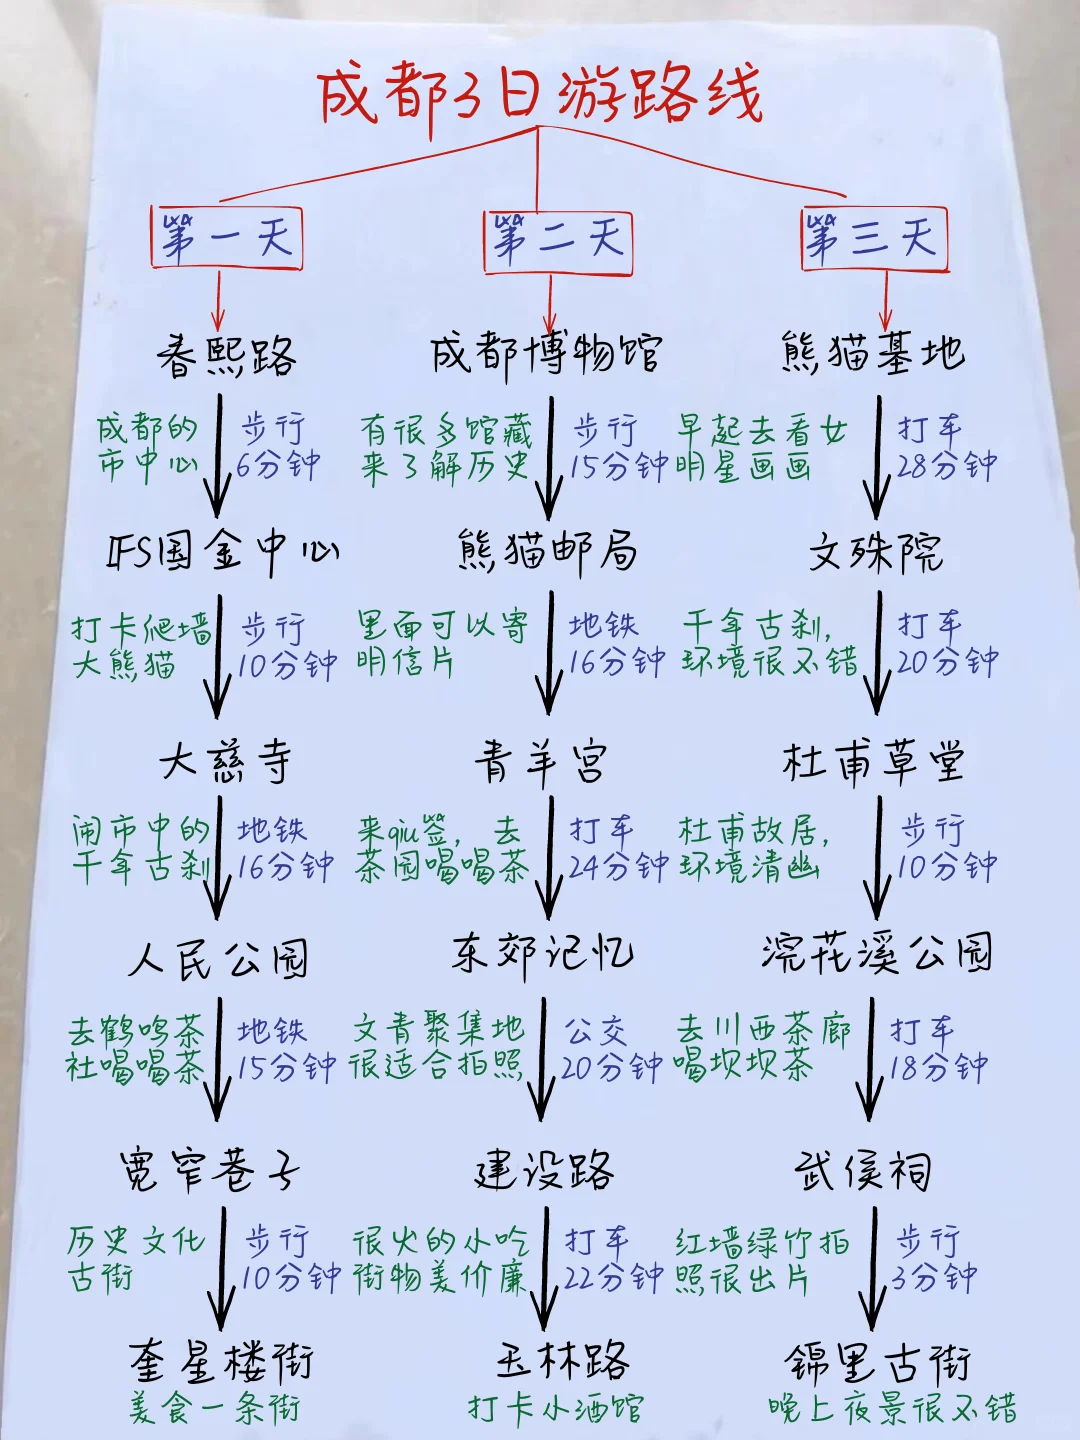 成都3日游路线
第一天
春熙路
成都的
市中心
步行
6分钟
IFS国金中心
打卡爬墙
大熊猫
步行
10分钟
大慈寺
闹市中的
千年古刹
地铁
16分钟
人民公园
去鹤鸣茶
社喝喝茶
地铁
15分钟
宽窄巷子
历史文化
古街
步行
10分钟
奎星楼街
美食一条街
第二天
成都博物馆
有很多馆藏
来了解历史
步行
15分钟
熊猫邮局
里面可以寄
明信片
地铁
16分钟
青羊宫
来qiu签，去
茶园喝喝茶
打车
24分钟
东郊记忆
文青聚集地
很适合拍照
公交
20分钟
建设路
很火的小吃
街物美价廉
打车
22分钟
玉林路
打卡小酒馆
第三天
熊猫基地
早起去看女
明星画画
打车
28分钟
文殊院
千年古刹，
环境很不错
打车
20分钟
杜甫草堂
杜甫故居，
环境清幽
步行
10分钟
浣花溪公园
去川西茶廊
喝坝坝茶
打车
18分钟
武侯祠
红墙绿竹拍
照很出片
步行
3分钟
锦里古街
晚上夜景很不错